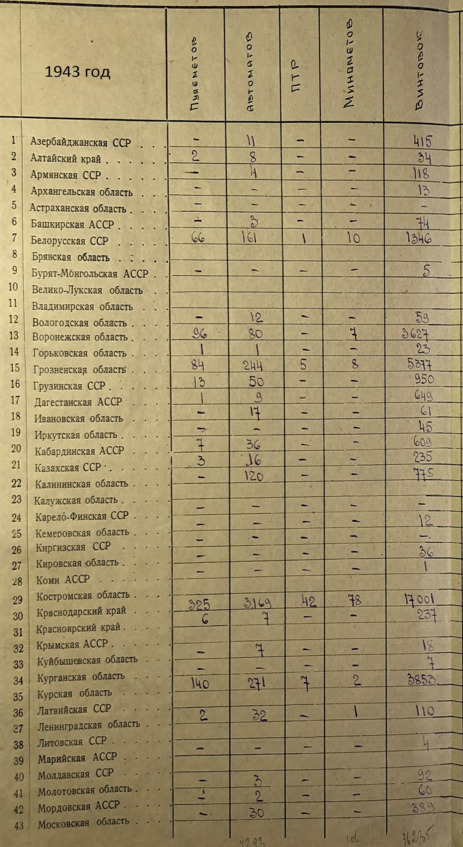 1943 год Пулеметов Автоматов ПТР Минометов Винтовок
1 Азербайджанская ССР - 11 - - 415
2 Алтайский край 2 8 - - 34
3 Армянская ССР - 4 - - 118
4 Архангельская область - - - - 13
5 Астраханская область - - - - -
6 Башкирская АССР - 3 - - 74
7 Белорусская ССР 66 161 1 10 1346
8 Брянская область
9 Бурят-Монгольская АССР - - - - 5
10 Велико-Лукская область
11 Владимирская область
12 Вологодская область - 12 - - 59
13 Воронежская область 96 80 - 7 3627
14 Горьковская область 1 1 - - 23
15 Грозненская область 84 244 5 8 5377
16 Грузинская ССР 13 50 - - 950
17 Дагестанская АССР 1 9 - - 649
18 Ивановская область - 17 - - 61
19 Иркутская область - - - - 45
20 Кабардинская АССР 7 36 - - 609
21 Казахская ССР 3 16 - - 235
22 Калининская область - 120 - - 775
23 Калужская область
24 Карело-Финская ССР - - - - -
25 Кемеровская область - - - - 12
26 Киргизская ССР - - - - -
27 Кировская область - - - - 36
28 Коми АССР - - - - 1
29 Костромская область
30 Краснодарский край 325 3169 42 78 17001
31 Красноярский край 6 7 - - 237
32 Крымская АССР
33 Куйбышевская область - 7 - - 18
34 Курганская область - - - - 7
35 Курская область 140 271 7 2 3853
36 Латвийская ССР
37 Ленинградская область 2 32 - 1 110
38 Литовская ССР
39 Марийская АССР - - - - 4
40 Молдавская ССР
41 Молотовская область - 3 - - 92
42 Мордовская АССР - 2 - - 60
43 Московская область - 30 - - 389